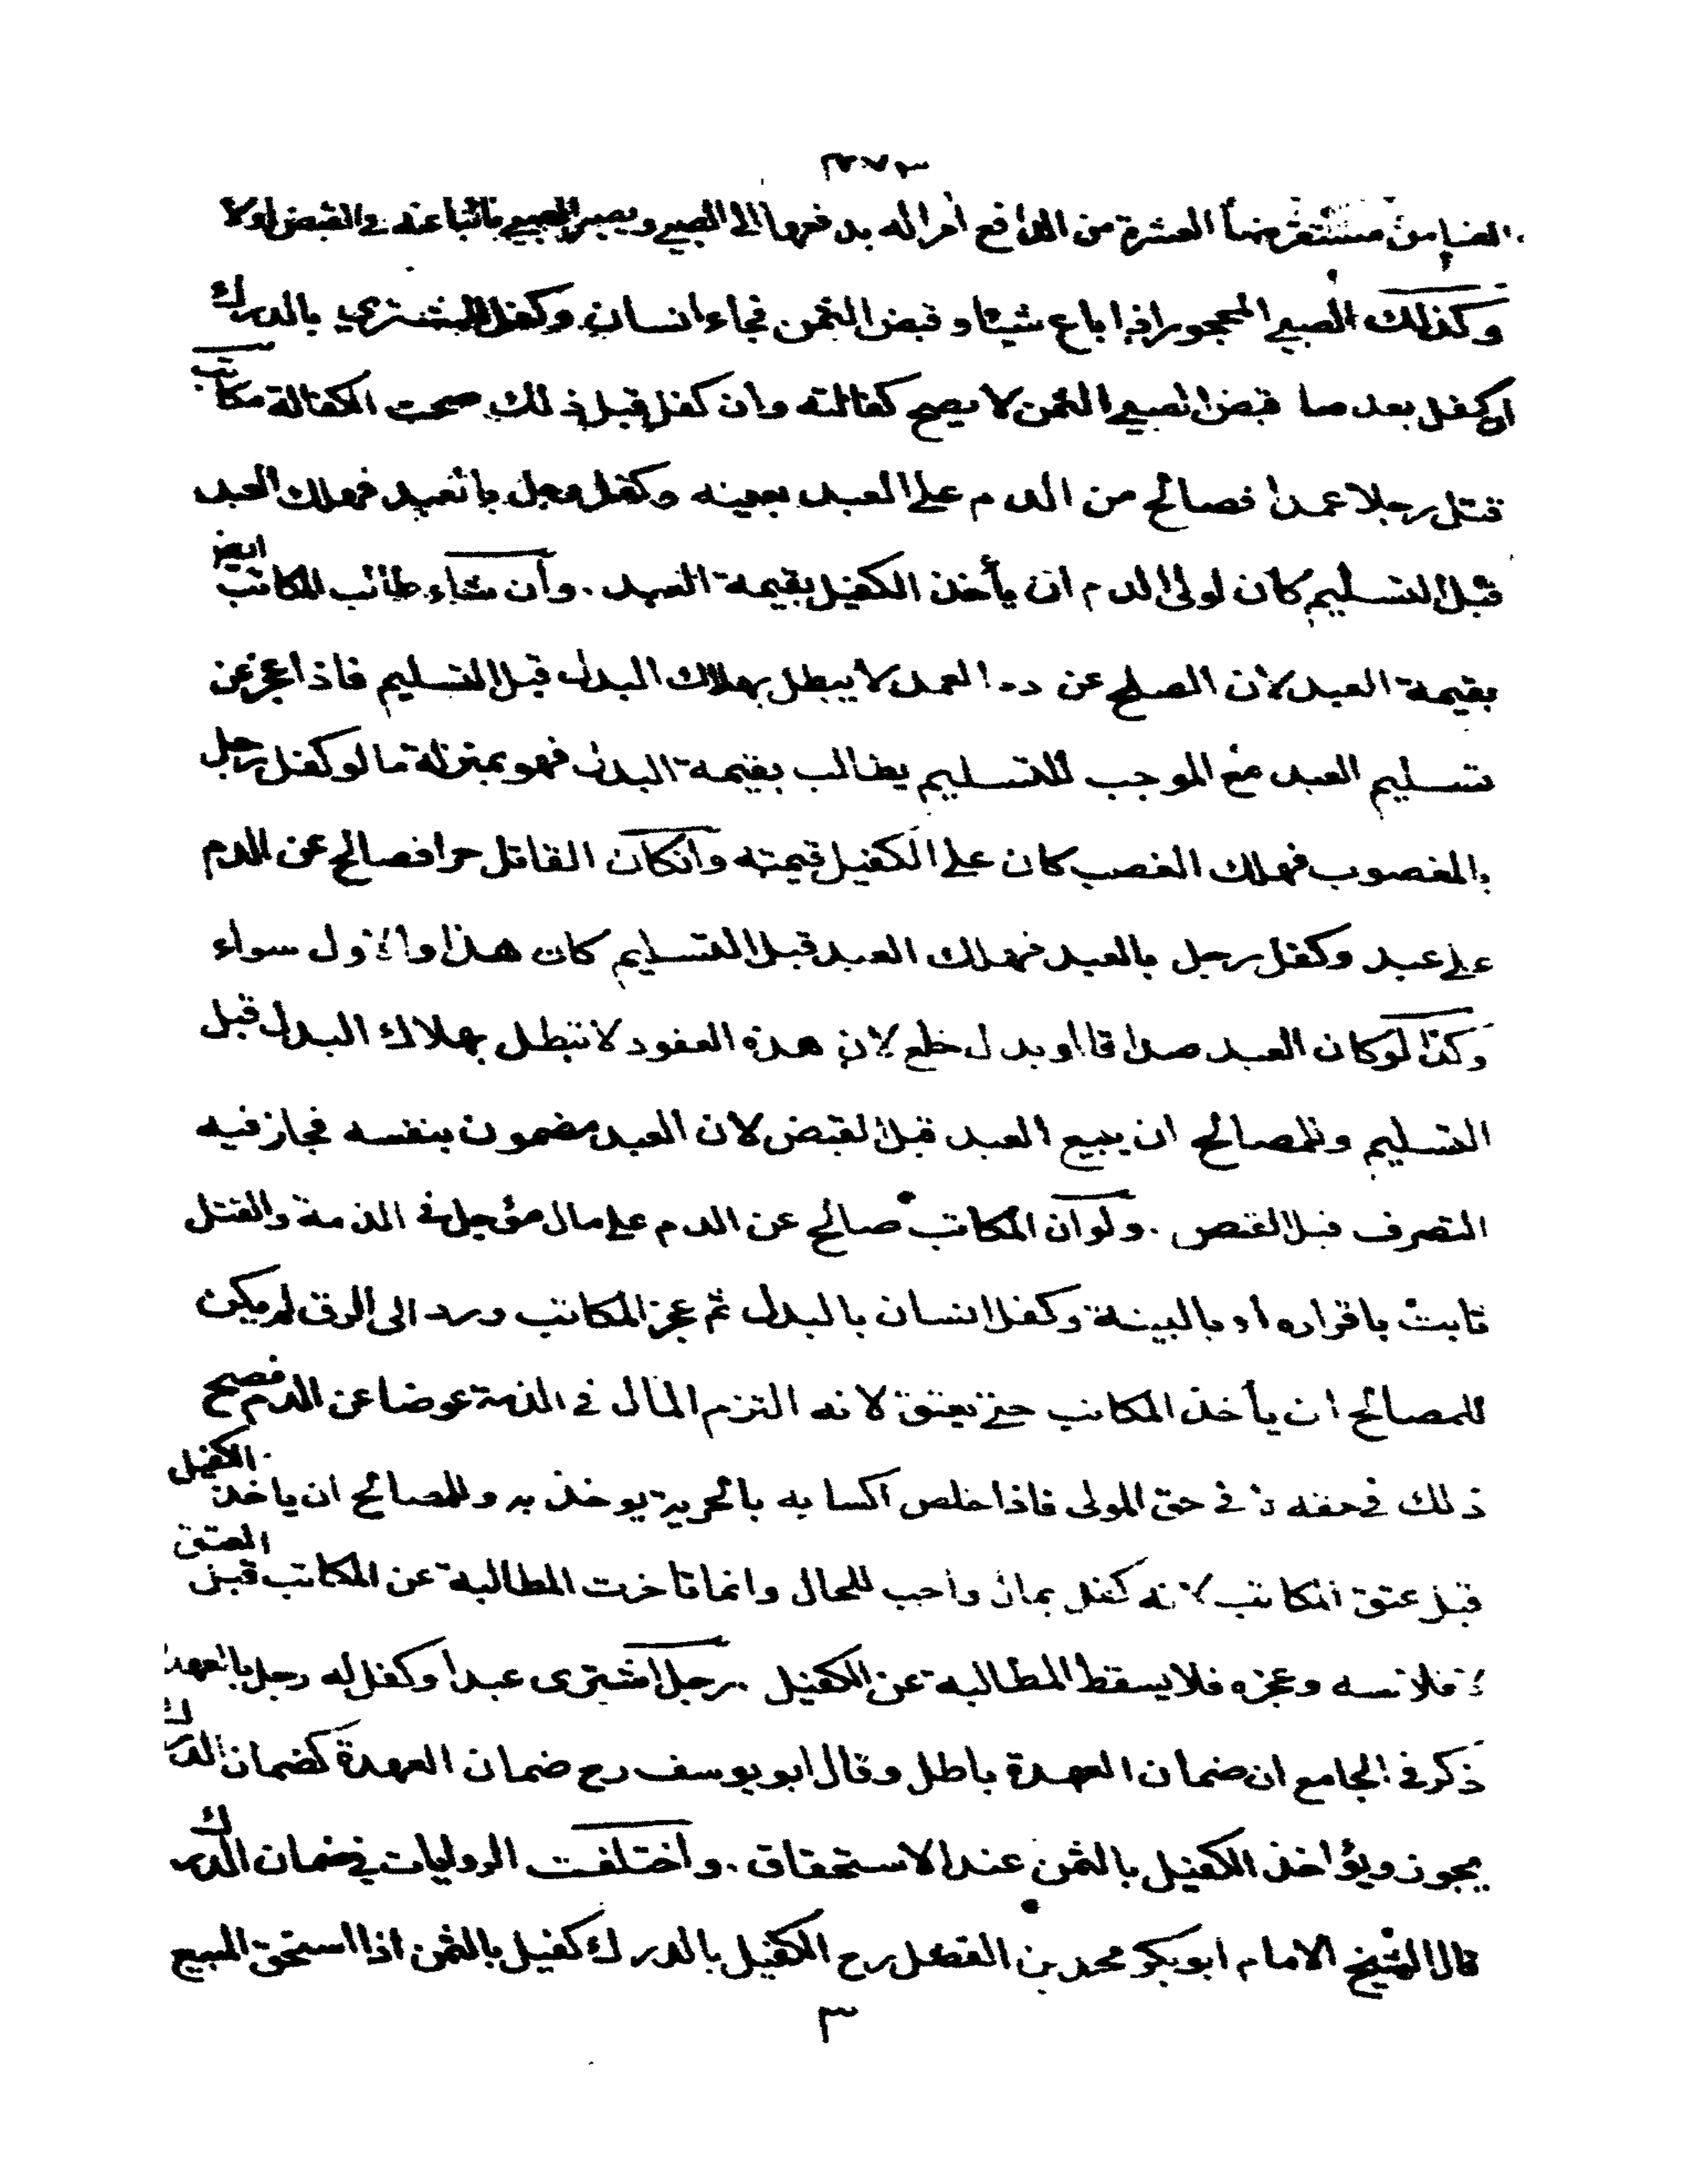 ٢٧٣
الضامن مستقرضا العشرة من الدافع امرا له بدفعها الى الصبي ويصير الصبي نائبا عنه في القبض اولا
وكذلك الصبي المحجور اذا باع شيئا وقبض الثمن فجاء انسان وكفل للمشتري بالدرك
ان كفل بعد ما قبض الصبي الثمن لا يصح كفالته وان كفل قبل ذلك صحت الكفالة مكاتب
قتل رجلا عمدا فصالح من الدم على العبد بعينه وكفل رجل بالعبد فهلك العبد
قبل التسليم كان لولى الدم ان يأخذ الكفيل بقيمة العبد . وان شاء طالب المكاتب ايضا
بقيمة العبد لان الصلح عن دم العمد لا يبطل بهلاك البدل قبل التسليم فاذا عجز عن
تسليم العبد مع الموجب للتسليم يطالب بقيمة البدل فهو بمنزلة ما لو كفل رجل
بالمغصوب فهلك الغصب كان على الكفيل قيمته وانكان القاتل حرا فصالح عن الدم
على عبد وكفل رجل بالعبد فهلك العبد قبل التسليم كان هذا والاول سواء
وكذا لوكان العبد صداقا او بدل خلع لان هذه العقود لا تبطل بهلاك البدل قبل
التسليم وللمصالح ان يبيع العبد قبل القبض لان العبد مضمون بنفسه فجاز فيه
التصرف قبل القبض . ولو ان المكاتب صالح عن الدم على مال مؤجل في الذمة والقتل
ثابت باقراره او بالبينة وكفل انسان بالبدل ثم عجز المكاتب ورد الى الرق لم يكن
للمصالح ان يأخذ المكاتب حتى يعتق لانه التزم المال في الذمة عوضا عن الدم فصح
ذلك في حقه لا في حق المولى فاذا خلص اكسابه بالحرية يوخذ به وللمصالح ان ياخذ الكفيل
قبل عتق المكاتب لانه كفل بمال واجب للحال وانما تاخرت المطالبة عن المكاتب قبل العتق
لافلاسه وعجزه فلا يسقط المطالبة عن الكفيل . رجل اشترى عبدا وكفل له رجل بالعهدة
ذكر في الجامع ان ضمان العهدة باطل وقال ابو يوسف رح ضمان العهدة كضمان الدرك
يجوز ويؤاخذ الكفيل بالثمن عند الاستحقاق . واختلفت الروايات في ضمان الدرك
قال الشيخ الامام ابو بكر محمد بن الفضل رح الكفيل بالدرك كفيل بالثمن اذا استحق المبيع
٣